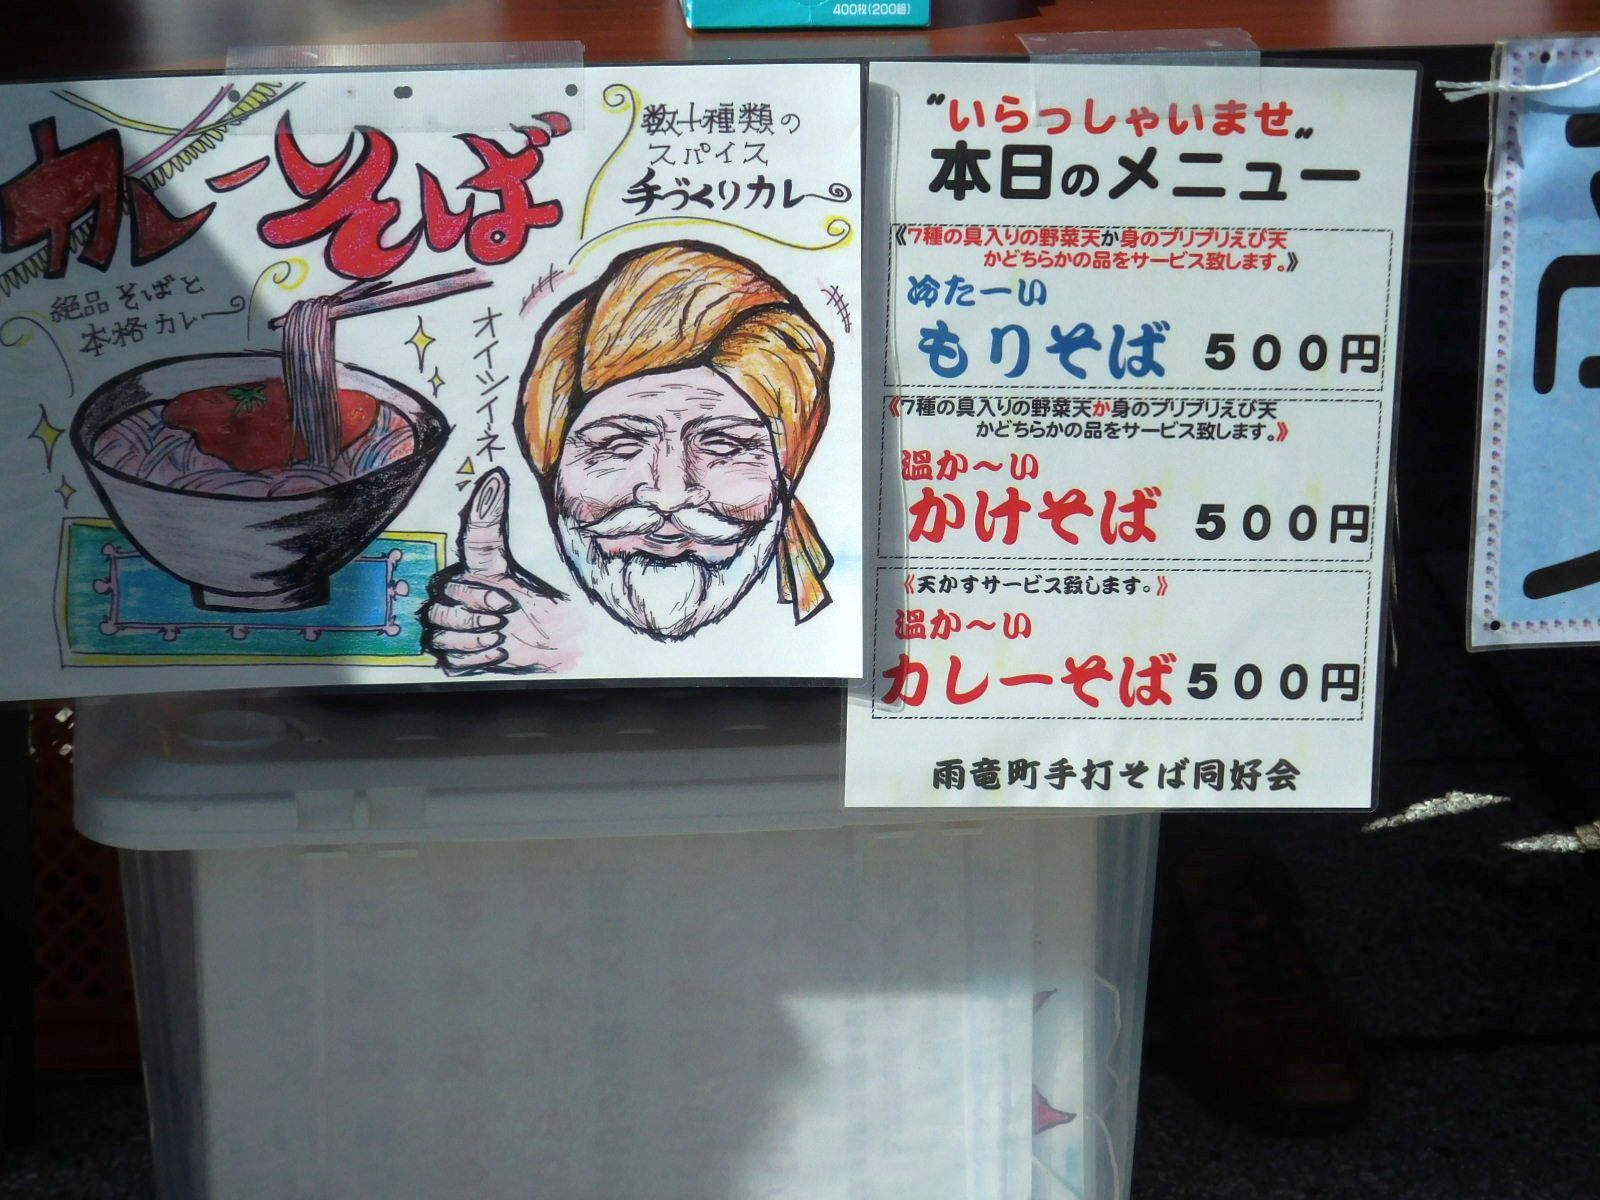 400枚(200組)
カレーそば
数十種類の
スパイス
手づくりカレ〜
絶品そばと
本格カレー
オイシイネ
"いらっしゃいませ"
本日のメニュー
《7種の具入りの野菜天か身のプリプリえび天
かどちらかの品をサービス致します。》
冷たーい
もりそば 500円
《7種の具入りの野菜天か身のプリプリえび天
かどちらかの品をサービス致します。》
温か〜い
かけそば 500円
《天かすサービス致します。》
温か〜い
カレーそば 500円
雨竜町手打そば同好会